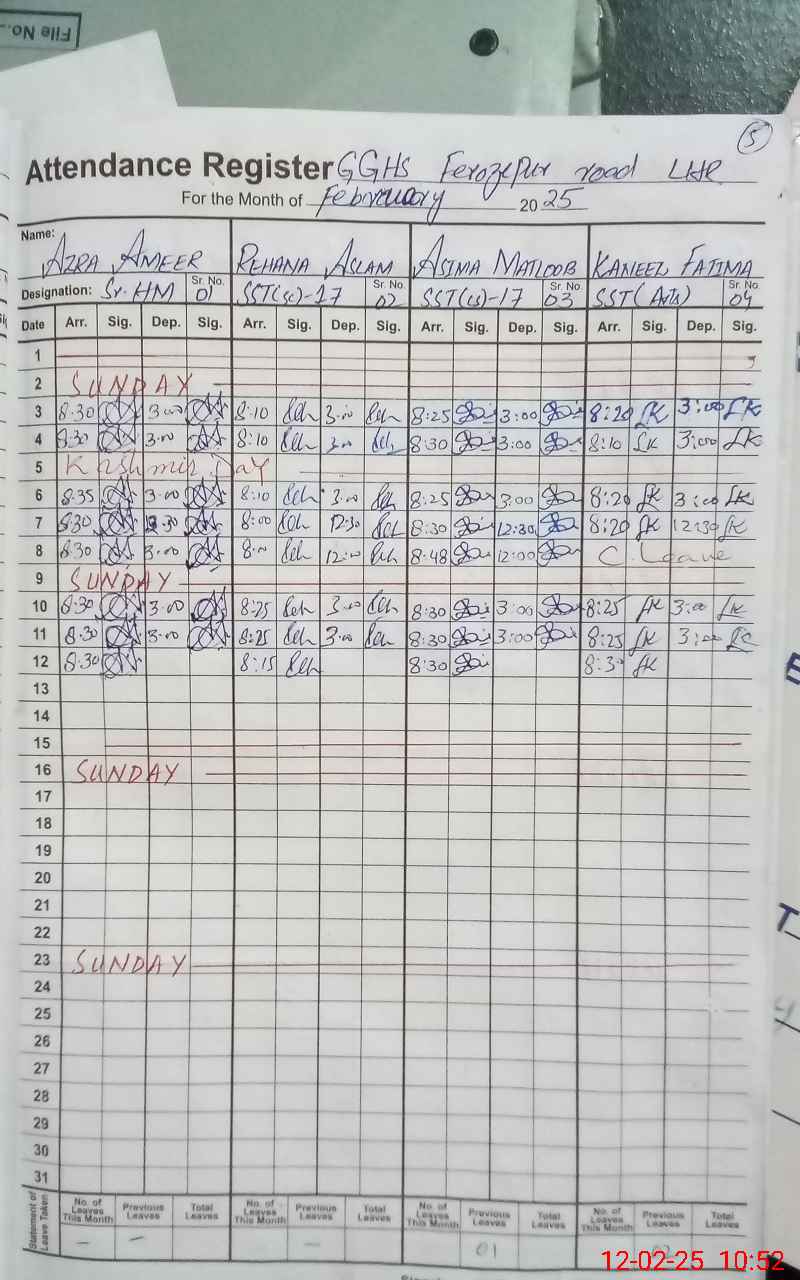 File No.
5
Attendance Register GGHS Ferozepur road LHR
For the Month of February 2025
Name: AZRA AMEER REHANA ASLAM ASIMA MATLOOB KANEEZ FATIMA
Designation: Sr. HM Sr. No. 01 SST(sc)-17 Sr. No. 02 SST(cs)-17 Sr. No. 03 SST(Arts) Sr. No. 04
Date Arr. Sig. Dep. Sig. Arr. Sig. Dep. Sig. Arr. Sig. Dep. Sig. Arr. Sig. Dep. Sig.
1
2 SUNDAY
3 8:30 3:00 8:10 3:00 8:25 3:00 8:20 3:00
4 8:30 3:00 8:10 3:00 8:30 3:00 8:10 3:00
5 Kashmir Day
6 8:35 3:00 8:10 3:00 8:25 3:00 8:20 3:00
7 8:30 8:00 12:30 8:30 12:30 8:20 12:30
8 8:30 3:00 8:00 12:00 8:48 12:00 C. Leave
9 SUNDAY
10 8:30 3:00 8:25 3:00 8:30 3:00 8:25 3:00
11 8:30 3:00 8:25 3:00 8:30 3:00 8:25 3:00
12 8:30 8:15 8:30 8:30
13
14
15
16 SUNDAY
17
18
19
20
21
22
23 SUNDAY
24
25
26
27
28
29
30
31
Statement of Leave Taken No. of Leaves This Month Previous Leaves Total Leaves No. of Leaves This Month Previous Leaves Total Leaves No. of Leaves This Month Previous Leaves Total Leaves No. of Leaves This Month Previous Leaves Total Leaves
– – – 01
12-02-25 10:52